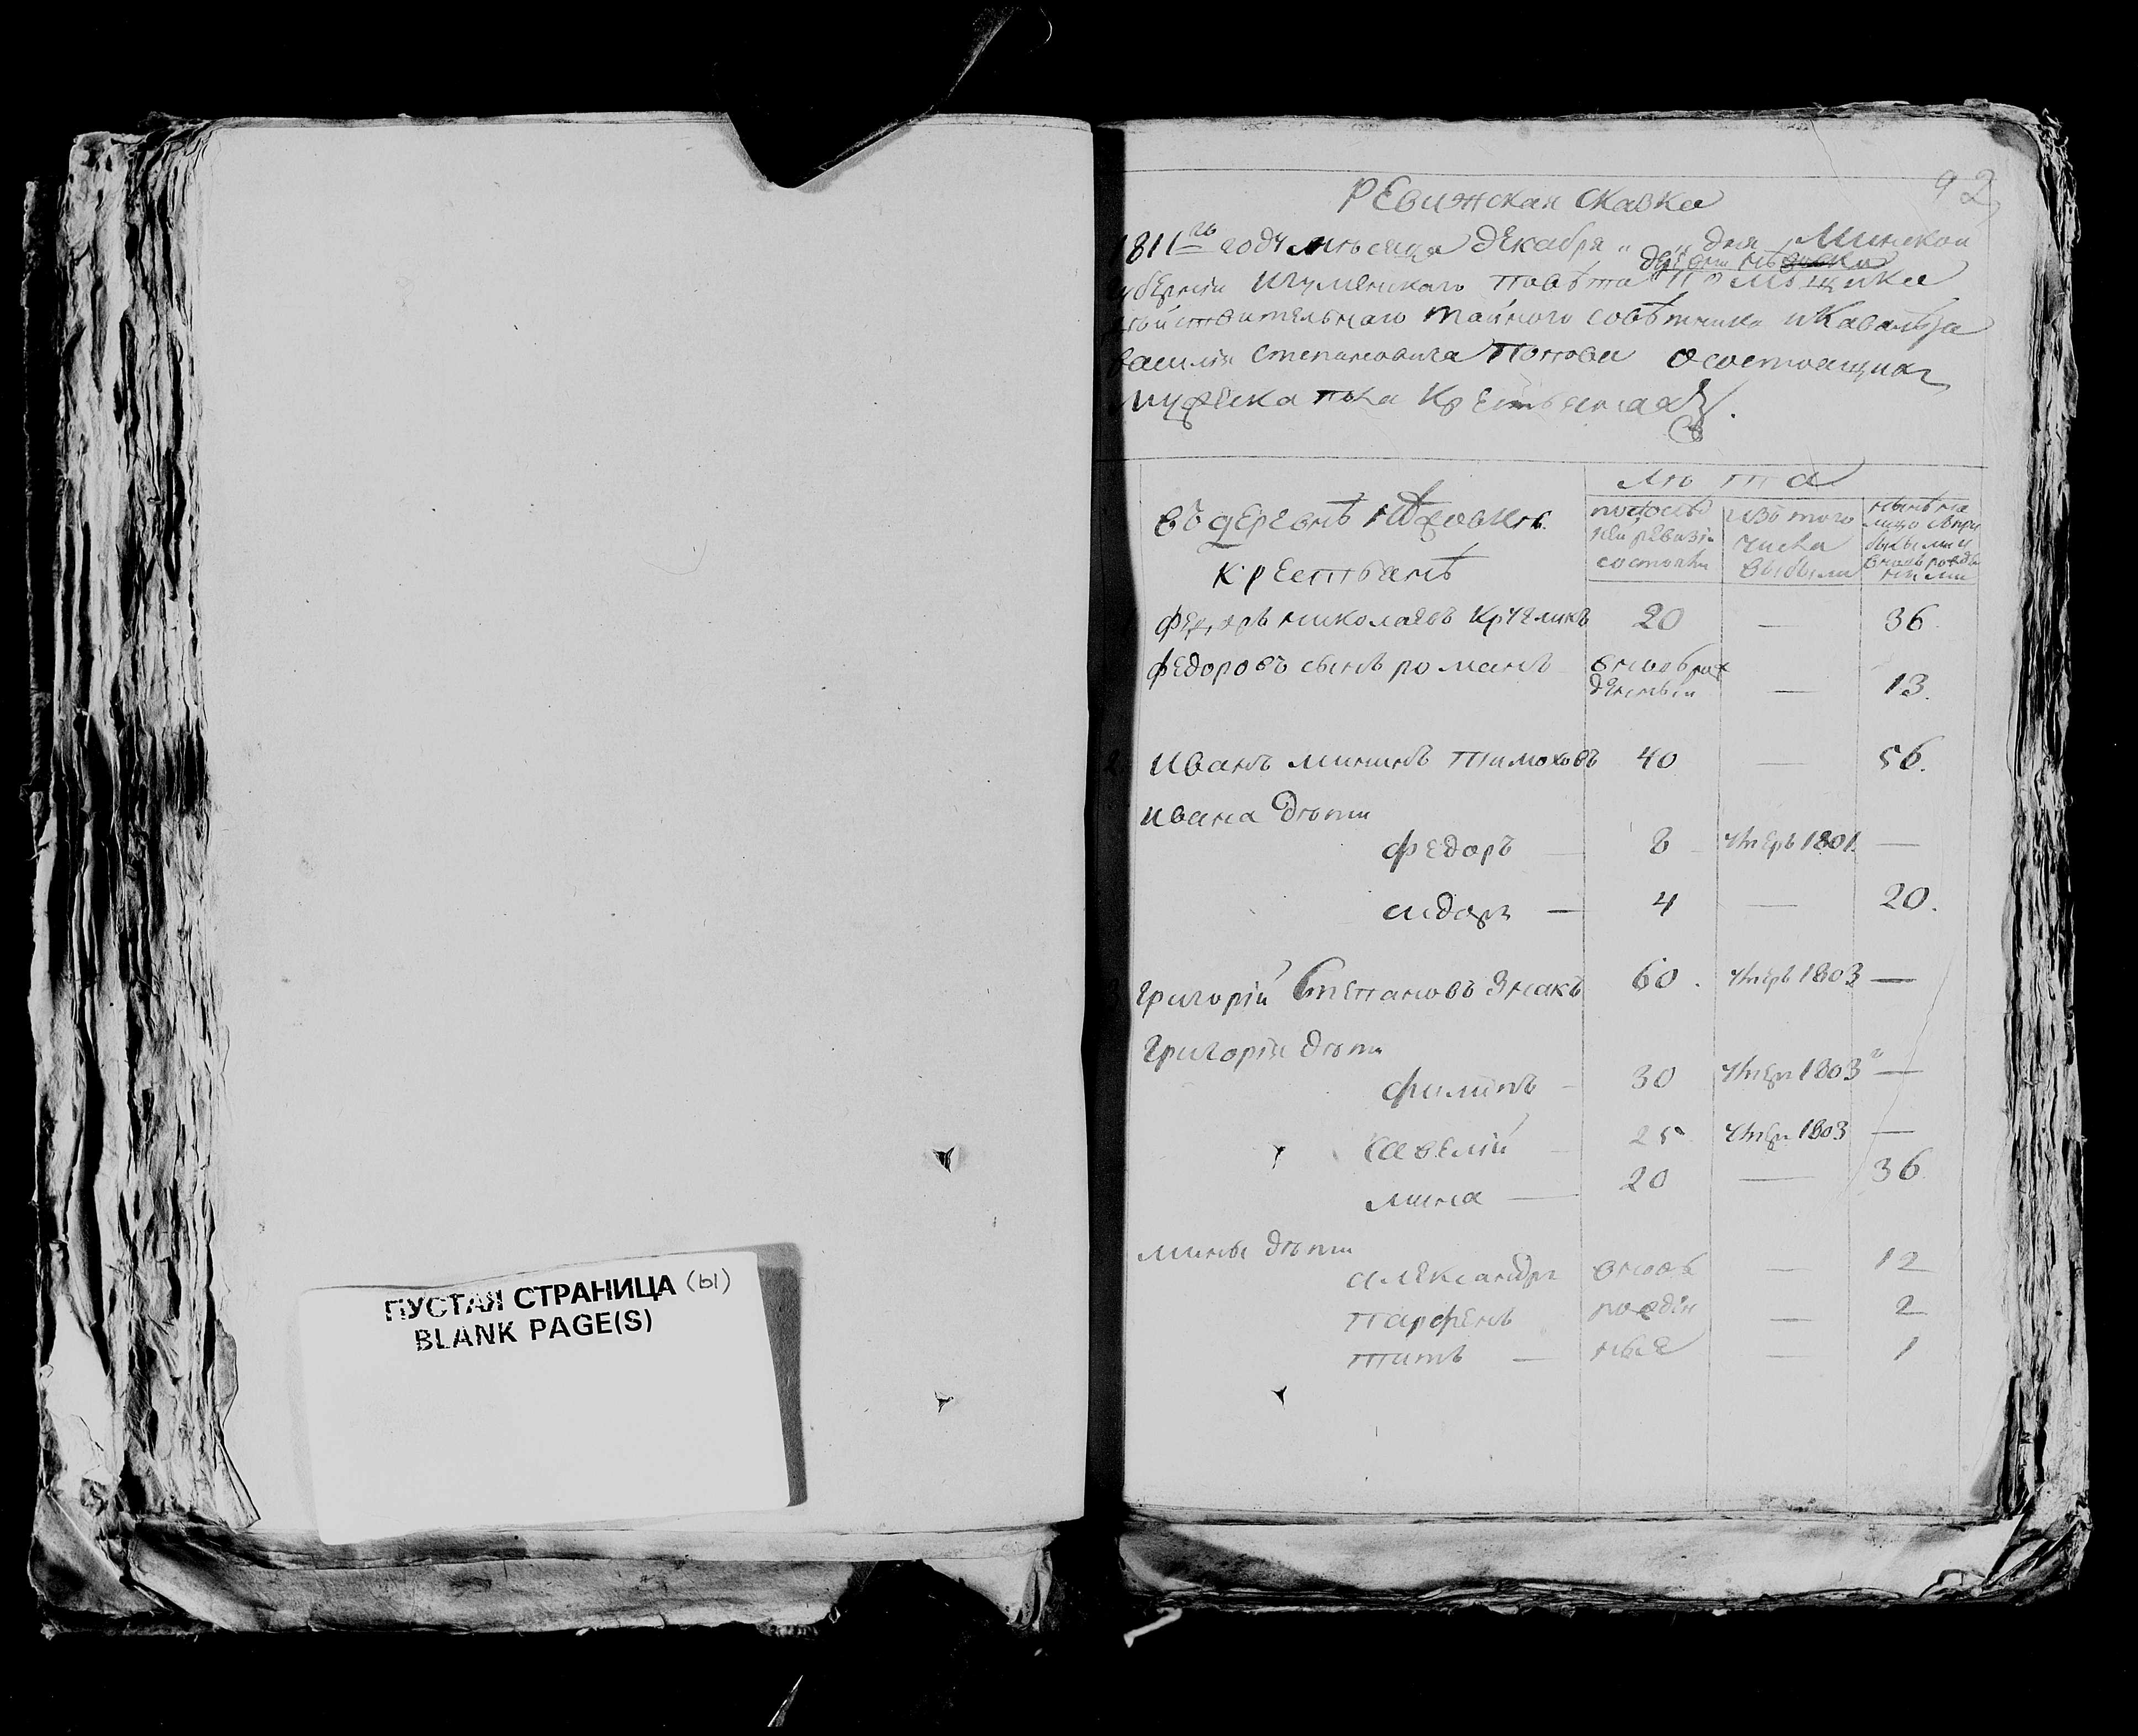 ПУСТАЯ СТРАНИЦА (ы)
BLANK PAGE(S)
92
Ревижская Сказка
1811го году мѣсяца декабря „ „ дня Минской
губернии Игуменскаго повѣта помѣщика
действительнаго тайного совѣтника и Кавалера
василия степановича Попова о состоящих
мужеска пола Крестьянах.
Лѣта
въ деревнѣ
крестьянъ
по последней ревизии состояли
изъ того числа выбыли
ныне на лицо
Федоръ николаевъ Кручликъ 20 — 36.
федоровъ сынъ романъ вновь рожденный — 13.
2 Иванъ мининъ Тимоховъ 40 — 56.
ивана дѣти
федоръ — 8 умеръ 1801. —
сидоръ — 4 — 20.
3 григорій Степановъ Знакъ 60. умеръ 1803 —
григорія дѣти
филипъ — 30 умеръ 1803г —
савелій — 25 умеръ 1803 —
мина — 20 — 36
мины дѣти
александръ вновь — 12
парфенъ рожден — 2
титъ — ные — 1